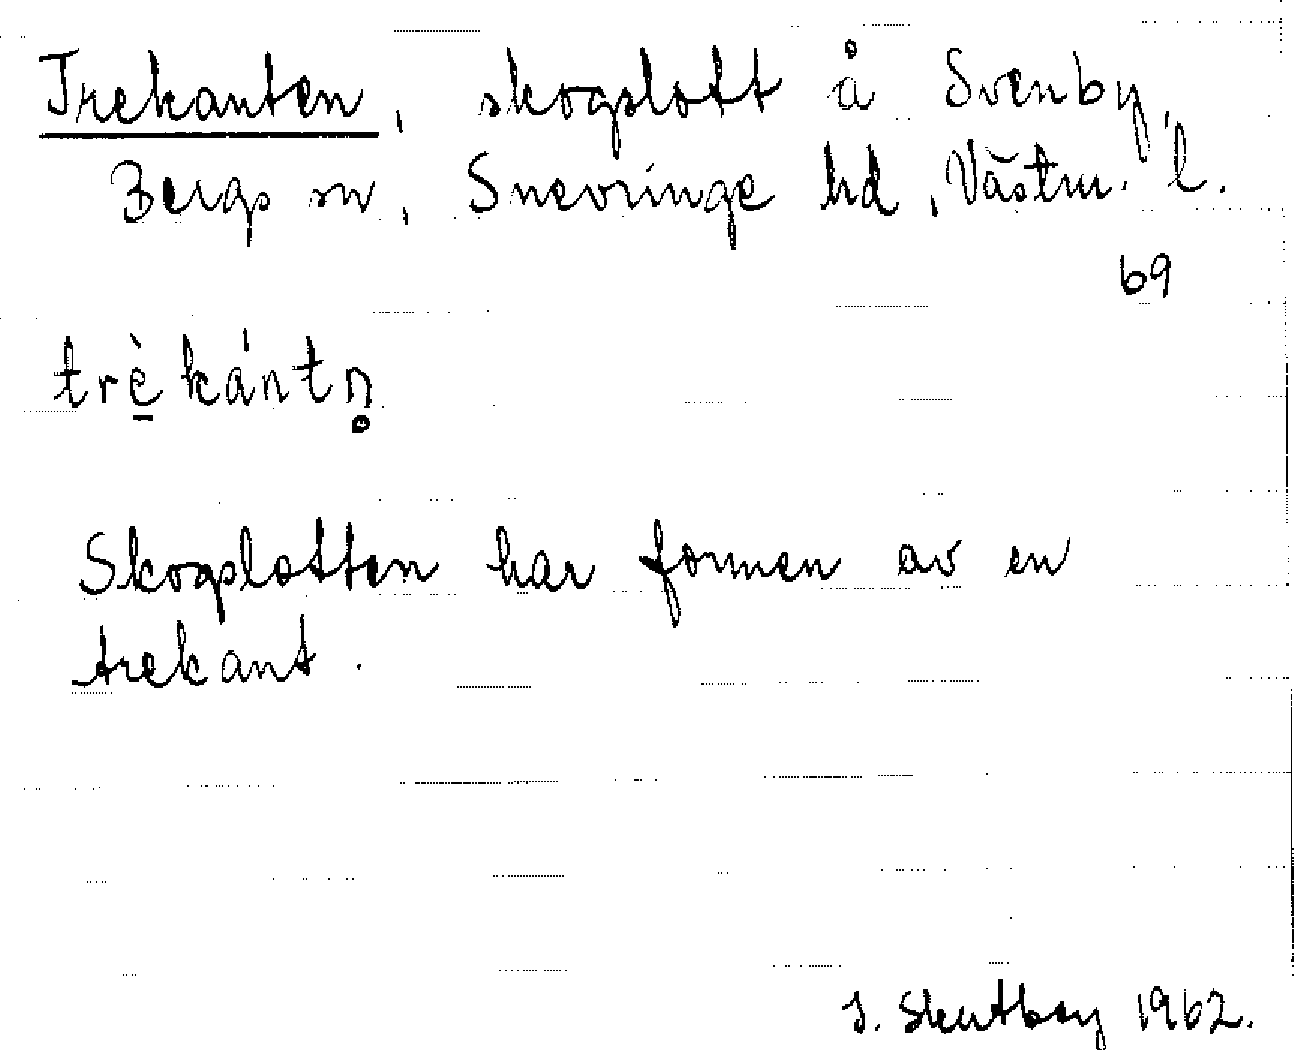 Trekanten, skogslott å Svenby,
Bergs sn, Snevringe hd, Västm. l.
69
trèkántn̥
Skogslotten har formen av en
trekant.
S. Skutboy 1962.